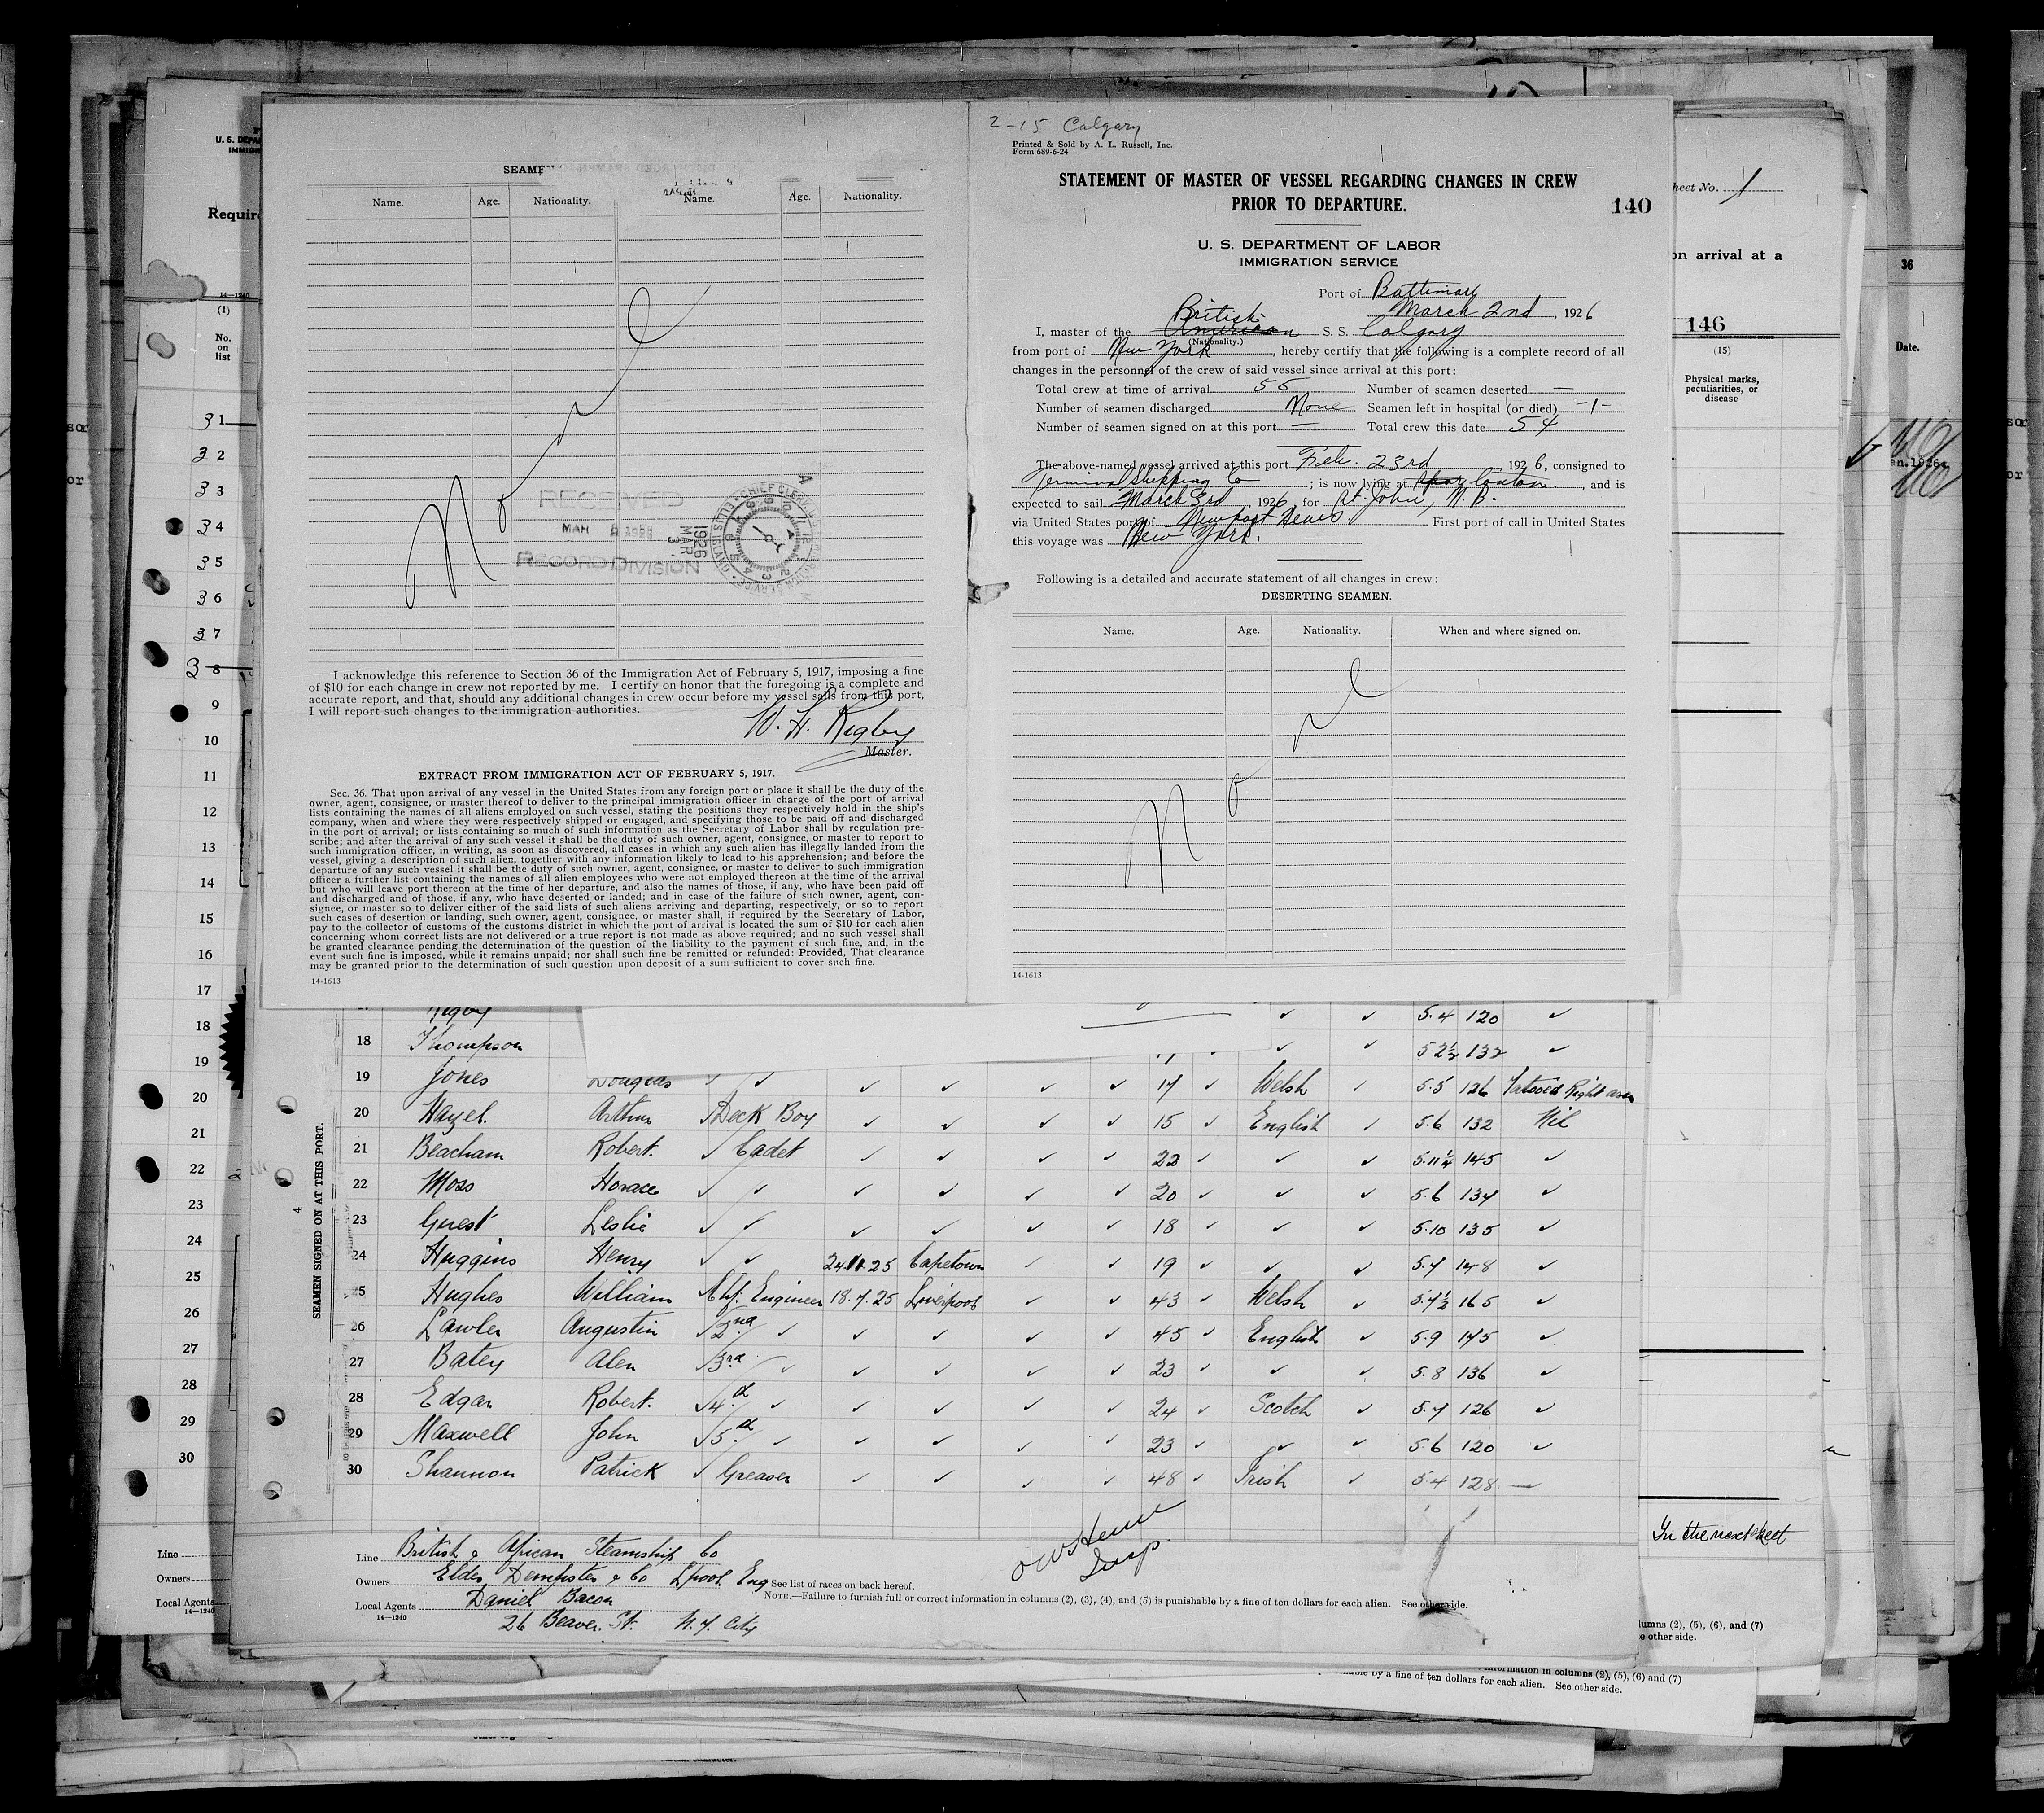 SEAMEN
Name. Age. Nationality. Name. Age. Nationality.
None
RECEIVED
MAR
1926
MAR 3
RECORD DIVISION
CHIEF CLERK
ELLIS ISLAND
I acknowledge this reference to Section 36 of the Immigration Act of February 5, 1917, imposing a fine
of $10 for each change in crew not reported by me. I certify on honor that the foregoing is a complete and
accurate report, and that, should any additional changes in crew occur before my vessel sails from this port,
I will report such changes to the immigration authorities.
W. H. Rigby
Master.
EXTRACT FROM IMMIGRATION ACT OF FEBRUARY 5, 1917.
Sec. 36. That upon arrival of any vessel in the United States from any foreign port or place it shall be the duty of the
owner, agent, consignee, or master thereof to deliver to the principal immigration officer in charge of the port of arrival
lists containing the names of all aliens employed on such vessel, stating the positions they respectively hold in the ship's
company, when and where they were respectively shipped or engaged, and specifying those to be paid off and discharged
in the port of arrival; or lists containing so much of such information as the Secretary of Labor shall by regulation pre-
scribe; and after the arrival of any such vessel it shall be the duty of such owner, agent, consignee, or master to report to
such immigration officer, in writing, as soon as discovered, all cases in which any such alien has illegally landed from the
vessel, giving a description of such alien, together with any information likely to lead to his apprehension; and before the
departure of any such vessel it shall be the duty of such owner, agent, consignee, or master to deliver to such immigration
officer a further list containing the names of all alien employees who were not employed thereon at the time of the arrival
but who will leave port thereon at the time of her departure, and also the names of those, if any, who have been paid off
and discharged and of those, if any, who have deserted or landed; and in case of the failure of such owner, agent, con-
signee, or master so to deliver either of the said lists of such aliens arriving and departing, respectively, or so to report
such cases of desertion or landing, such owner, agent, consignee, or master shall, if required by the Secretary of Labor,
pay to the collector of customs of the customs district in which the port of arrival is located the sum of $10 for each alien
concerning whom correct lists are not delivered or a true report is not made as above required; and no such vessel shall
be granted clearance pending the determination of the question of the liability to the payment of such fine, and, in the
event such fine is imposed, while it remains unpaid; nor shall such fine be remitted or refunded: Provided, That clearance
may be granted prior to the determination of such question upon deposit of a sum sufficient to cover such fine.
14-1613
2-15 Calgary
Printed & Sold by A. L. Russell, Inc.
Form 689-6-24
STATEMENT OF MASTER OF VESSEL REGARDING CHANGES IN CREW
PRIOR TO DEPARTURE.
140
U. S. DEPARTMENT OF LABOR
IMMIGRATION SERVICE
Port of Baltimore
March 2nd, 1926
British
I, master of the American S. S. Calgary
(Nationality.)
from port of New York, hereby certify that the following is a complete record of all
changes in the personnel of the crew of said vessel since arrival at this port:
Total crew at time of arrival 55 Number of seamen deserted —
Number of seamen discharged None Seamen left in hospital (or died) -1-
Number of seamen signed on at this port — Total crew this date 54
The above-named vessel arrived at this port Feb. 23rd, 1926, consigned to
Terminal Shipping Co; is now lying at Canton, and is
expected to sail March 3rd, 1926 for St. John, N. B.
via United States port of Newport News First port of call in United States
this voyage was New York.
Following is a detailed and accurate statement of all changes in crew:
DESERTING SEAMEN.
Name. Age. Nationality. When and where signed on.
None
14-1613
U. S. DEPA
IMMIGR
Require
14-1240
(1)
No. on list
31
32
33
34
35
36
37
38
9
10
11
12
13
14
15
16
17
18
19
20
21
22
23
24
25
26
27
28
29
30
Line
Owners
Local Agents
14-1240
heet No. 1
on arrival at a
146
(15)
Physical marks, peculiarities, or disease
36
Date.
an.1926
In the next sheet
SEAMEN SIGNED ON AT THIS PORT.
4
Rigby 5.4 120
18 Thompson 5 2½ 132
19 Jones Douglas 17 Welsh 5.5 126 Tatooed Right arm
20 Hazel. Arthur Deck Boy 15 English 5.6 132 Nil
21 Beacham Robert. Cadet 22 5.11¼ 145
22 Moss Horace 20 5.6 134
23 Guest Leslie 18 5.10 135
24 Huggins Henry 24.11.25 Capetown 19 5.7 148
25 Hughes William Chf. Engineer 18.7.25 Liverpool 43 Welsh 5.7½ 165
26 Lawler Augustin 2nd 45 English 5.9 145
27 Batey Alen 3rd 23 5.8 136
28 Edgar Robert. 4th 24 Scotch 5.7 126
29 Maxwell John 5th 23 5.6 120
30 Shannon Patrick Greaser 48 Irish 5.4 128 —
Line British & African Steamship Co
Owners Elder Dempster & Co Lpool Eng
Local Agents Daniel Bacon
14-1240
26 Beaver St. N. Y. City
Insp.
See list of races on back hereof.
NOTE.—Failure to furnish full or correct information in columns (2), (3), (4), and (5) is punishable by a fine of ten dollars for each alien. See other side.
lumns (2), (5), (6), and (7)
e other side.
information in columns (2), (5), (6) and (7)
able by a fine of ten dollars for each alien. See other side.